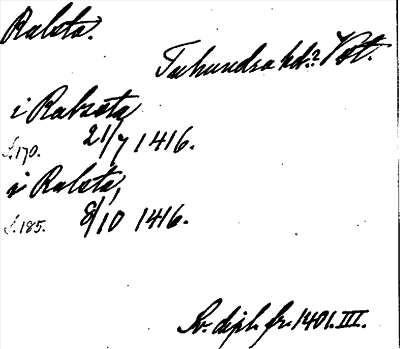 Ralsta.
Tuhundra hd.? Vst.
i Ralzsta
S.170. 21/7 1416.
i Ralsta,
S.185. 8/10 1416.
Sv. dipl. fr. 1401. III.